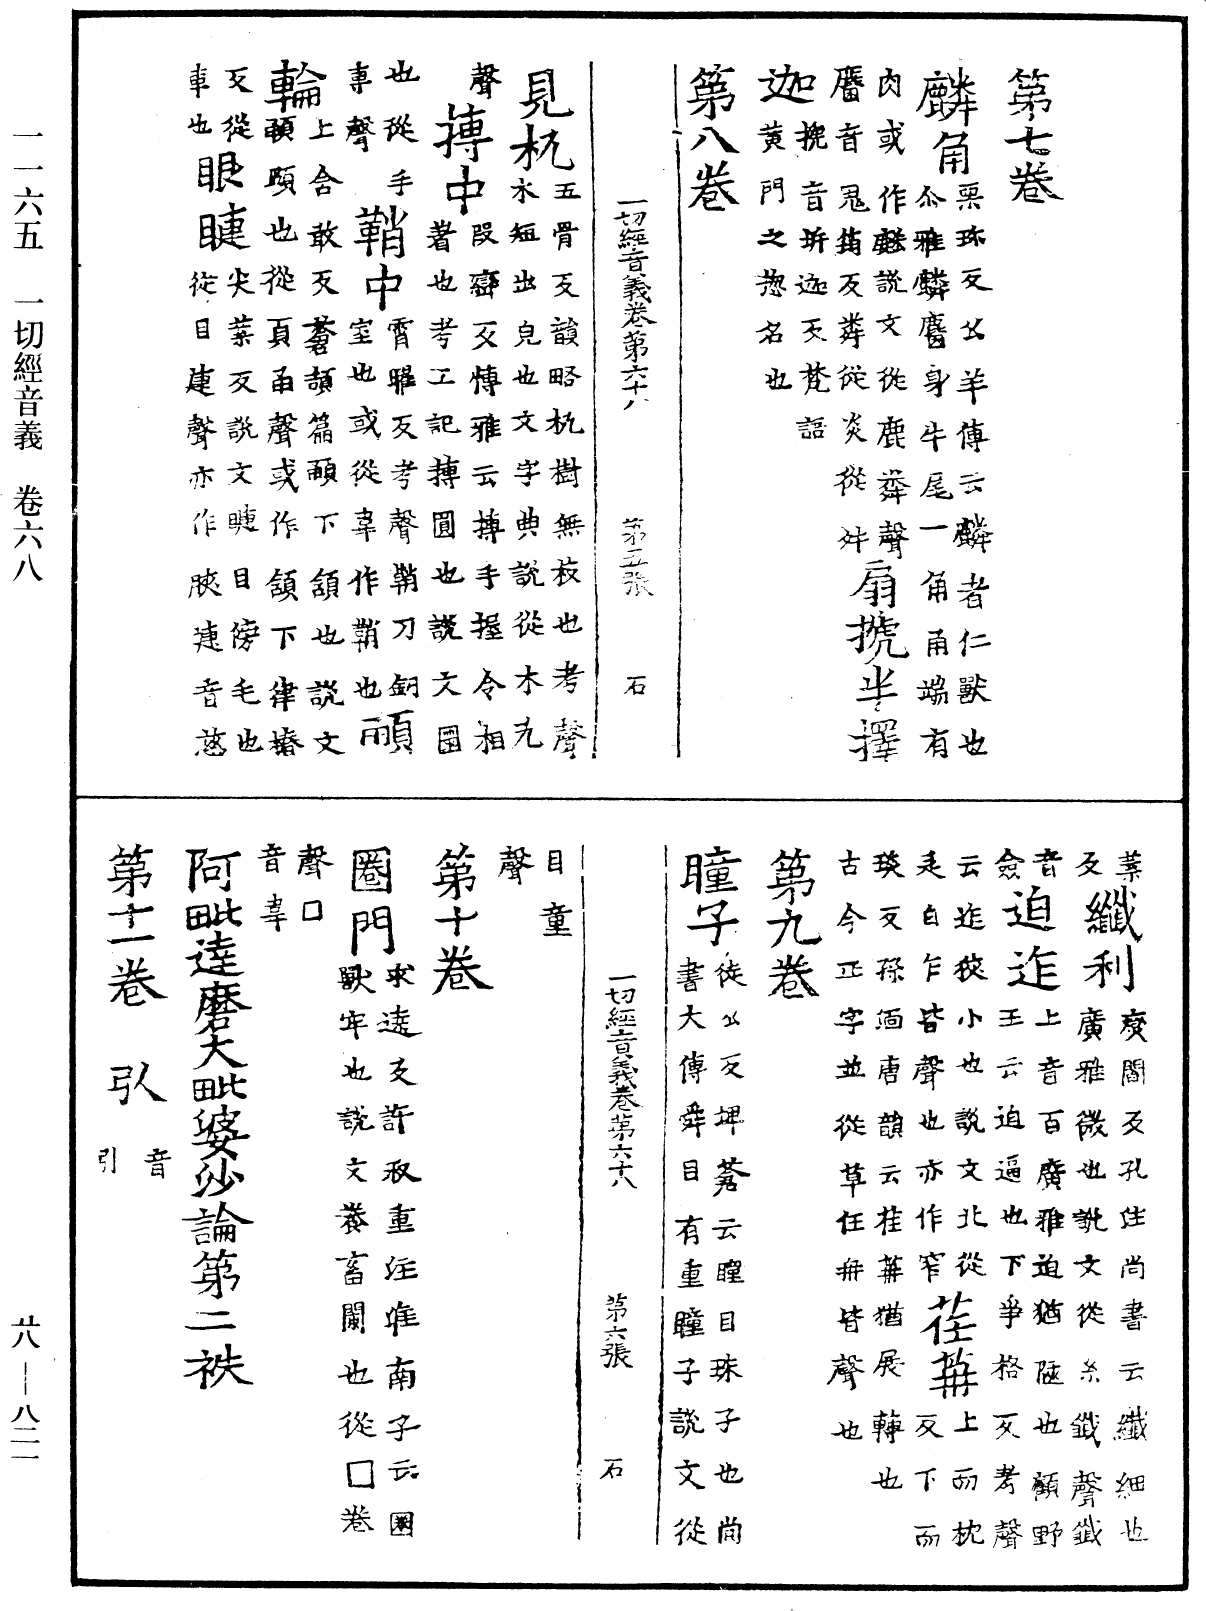 第七卷
麟角 栗珎反公羊傳云麟者仁獸也
尒雅麟麕身牛尾一角角端有
肉或作說文從鹿粦聲
麕音冕筠反粦從炎從舛 扇搋半擇
迦 搋音坼迦反梵語
黃門之惣名也
第八卷
一切經音義卷第六十八 第五張 石
見杌 五骨反韻略杌樹無枝也考聲
木短出皃也文字典說從木兀
聲 摶中 段巒反博雅云摶手握令相
著也考工記摶圓也說文團
也從手
專聲 鞘中 霄曜反考聲鞘刀劒
室也或從韋作鞘也 頋
輪 上含敢反蒼頡篇頋下頷也說文
頤也從頁甬聲或作頷下律揩
反從
車也 眼睫 尖葉反說文睫目傍毛也
從目疌聲亦作䀹疌音慈
葉
反 纖利 變閻反孔注尚書云纖細也
廣雅微也說文從糸韱聲韱
音
僉 迫迮 上音百廣雅迫猶陿也顧野
王云迫逼也下爭格反考聲
云迮狹小也說文北從
辵白乍皆聲也亦作窄 荏苒 上而枕
反下而
琰反孫愐唐韻云荏苒猶展轉也
古今正字並從草任冉皆聲也
第九卷
瞳子 徒公反埤蒼云瞳目珠子也尚
書大傳舜目有重瞳子說文從
一切經音義卷第六十八 第六張 石
目童
聲
第十卷
圈門 求遠反許叔重注淮南子云圈
獸牢也說文養畜閑也從囗卷
聲囗
音韋
阿毗達磨大毗婆沙論第二袟
第十一卷 引 音
引
一一六五 一切經音義 卷六八
五八—八二一